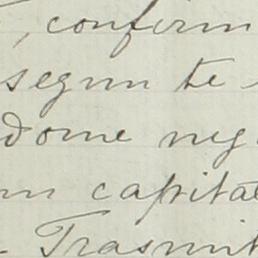 , confirm
segun te
dome neg
m capita
Trasmit